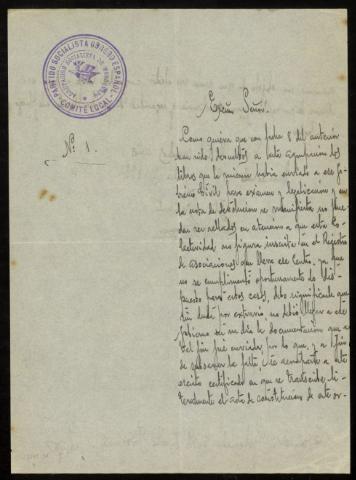 PARTIDO SOCIALISTA OBRERO ESPAÑOL
AGRUPACIÓN SOCIALISTA DE
COMITÉ LOCAL
Nº 1.
Excmo Señor:
Como quiera que con fecha 8 del anterior
han sido devueltos a esta agrupación los
libros que la misma había enviado a ese Go-
bierno Civil para examen y legalización y en
la nota de devolución se manifiesta no pue-
dan ser sellados en atención a que esta Co-
lectividad no figura inscrita en el Registro
de asociaciones que lleva ese Centro, ya que
no se cumplimentó oportunamente lo dis-
puesto para estos casos, debo significarle que
sin duda por extravío, no debió llegar a ese
Gobierno en su día la documentación que a
tal fin fué enviada, por lo que, y a fin
de subsanar la falta, se acompaña a este
escrito certificado en que se transcribe li-
teralmente el acta de constitución de este or-